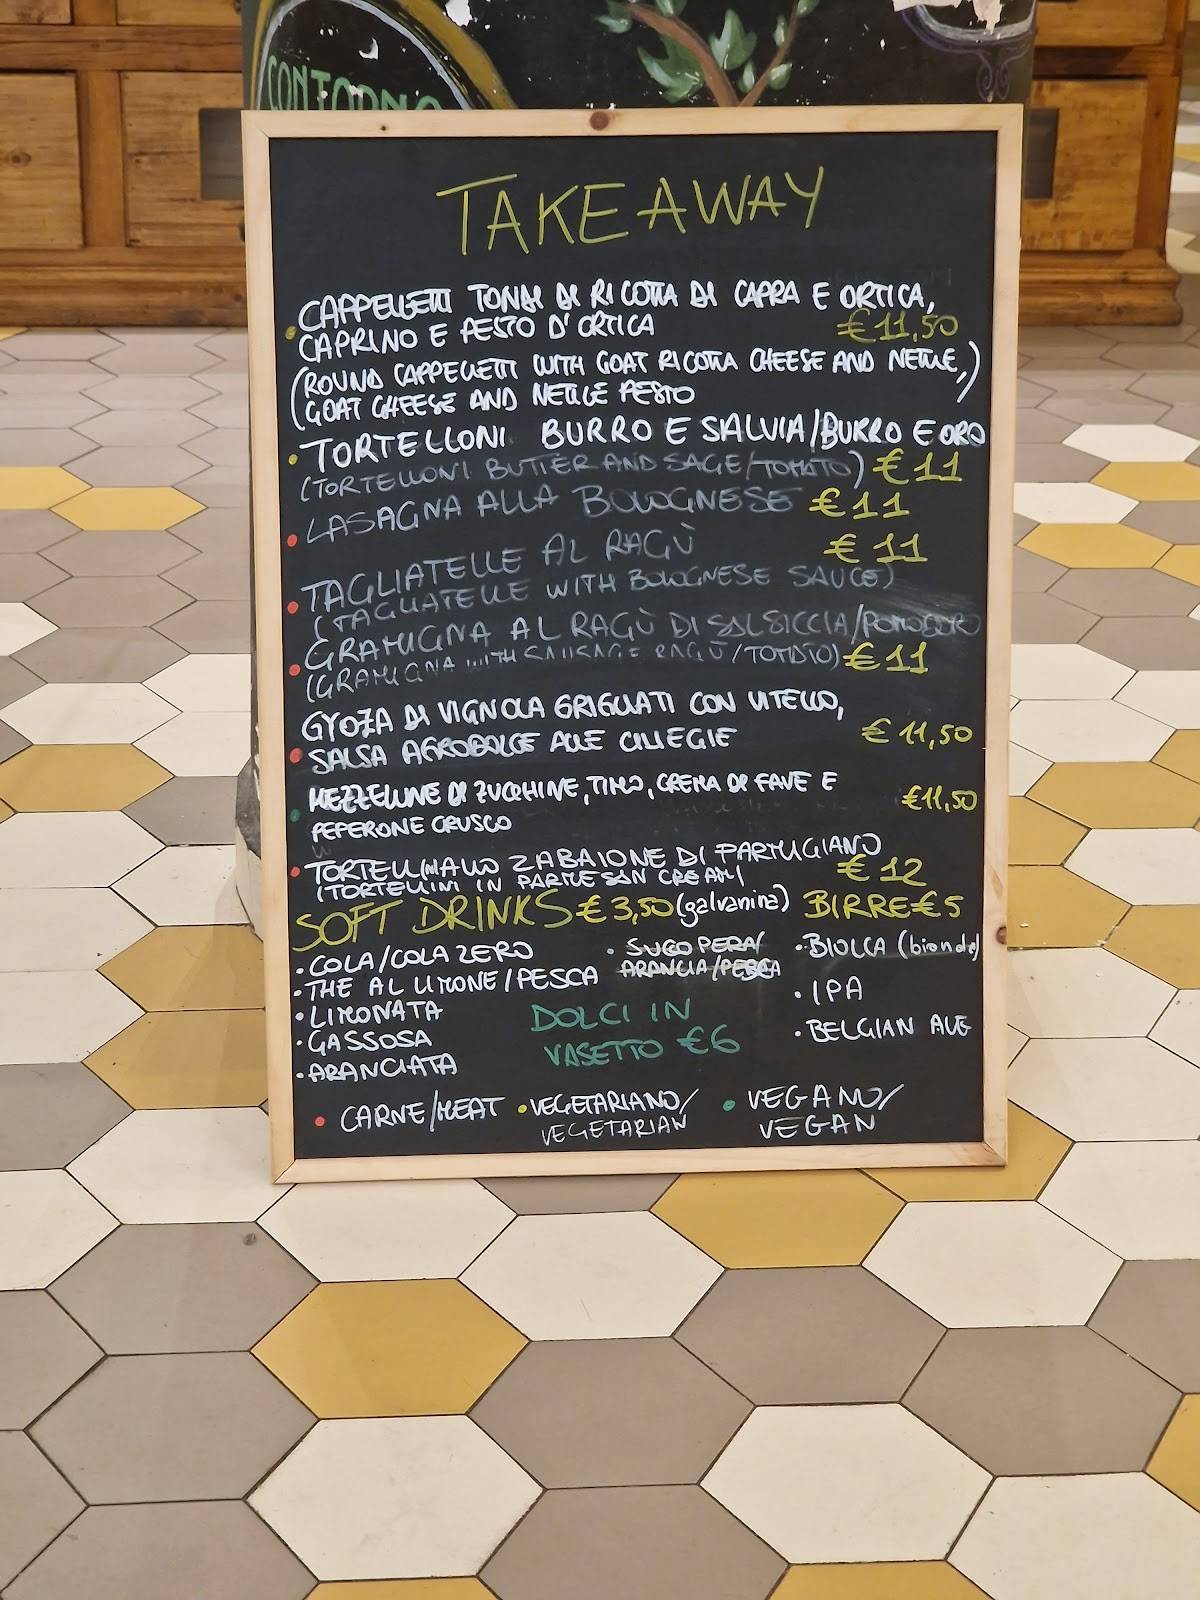 CONTORNO
TAKE AWAY
• CAPPELLETTI TONDI DI RICOTTA DI CAPRA E ORTICA,
CAPRINO E PESTO D'ORTICA €11,50
(ROUND CAPPELLETTI WITH GOAT RICOTTA CHEESE AND NETTLE,
GOAT CHEESE AND NETTLE PESTO)
• TORTELLONI BURRO E SALVIA/BURRO E ORO
(TORTELLONI BUTTER AND SAGE/TOMATO) €11
• LASAGNA ALLA BOLOGNESE €11
• TAGLIATELLE AL RAGÙ €11
(TAGLIATELLE WITH BOLOGNESE SAUCE)
• GRAMIGNA AL RAGÙ DI SALSICCIA/POMODORO
(GRAMIGNA WITH SAUSAGE RAGÙ/TOMATO) €11
GYOZA DI VIGNOLA GRIGLIATI CON VITELLO,
• SALSA AGRODOLCE ALLE CILIEGIE €11,50
• MEZZELUNE DI ZUCCHINE, TIMO, CREMA DI FAVE E
PEPERONE CRUSCO €11,50
• TORTELLINI ALLO ZABAIONE DI PARMIGIANO
(TORTELLINI IN PARMESAN CREAM) €12
SOFT DRINKS €3,50 (galvanina)
• COLA/COLA ZERO
• THE AL LIMONE/PESCA
• LIMONATA
• GASSOSA
• ARANCIATA
• SUCO PERA/
ARANCIA/PESCA
DOLCI IN
VASETTO €6
BIRRE €5
• BIOLCA (bionda)
• IPA
• BELGIAN ALE
• CARNE/MEAT
• VEGETARIANO/
VEGETARIAN
• VEGANO/
VEGAN